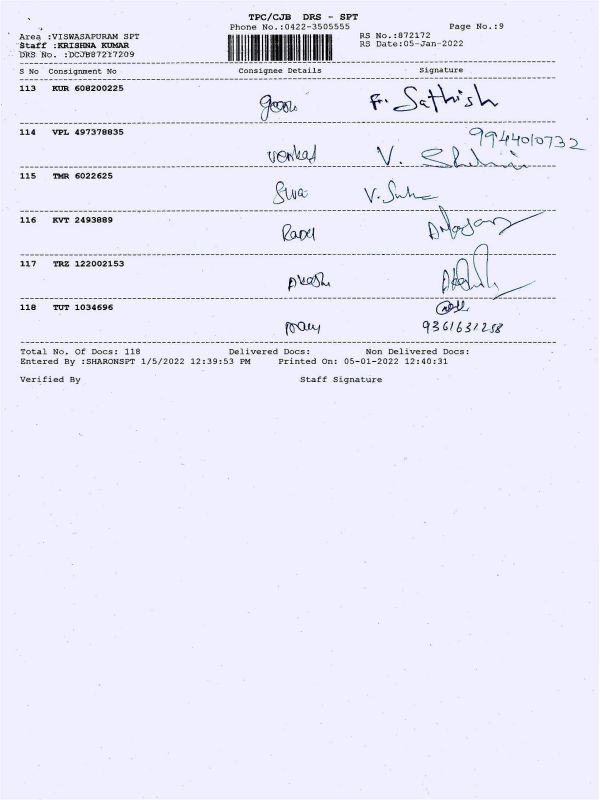 TPC/CJB DRS - SPT
Phone No.:0422-3505555 Page No.:9
Area :VISWASAPURAM SPT RS No.:872172
Staff :KRISHNA KUMAR RS Date:05-Jan-2022
DRS No. :DCJB87217209
S No Consignment No Consignee Details Signature
113 KUR 608200225
F. Sathish
114 VPL 497378835 9944010732
venkat V.
115 TMR 6022625
Siva V.
116 KVT 2493889
117 TRZ 122002153
Akash
118 TUT 1034696
9361631258
Total No. Of Docs: 118 Delivered Docs: Non Delivered Docs:
Entered By :SHARONSPT 1/5/2022 12:39:53 PM Printed On: 05-01-2022 12:40:31
Verified By Staff Signature